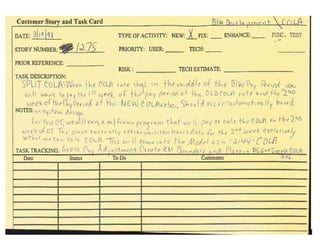 Customer Story and Task Card
BIW Development COLA
DATE: 3/19/98 TYPE OF ACTIVITY: NEW: X FIX: ENHANCE: FUNC. TEST
STORY NUMBER: 1275 PRIORITY: USER: TECH:
PRIOR REFERENCE:
RISK: TECH ESTIMATE:
TASK DESCRIPTION:
SPLIT COLA: When the COLA rate chgs in the middle of the BIW Pay Period we
will want to pay the 1st week of the pay period at the OLD COLA rate and the 2nd
week of the Pay Period at the NEW COLA rate. Should occur automatically based
NOTES: on system design.
For the OT, we will run a m/frame program that will pay or calc the COLA on the 2nd
week of OT. The plant currently retransmits the hours data for the 2nd week exclusively
so that we can calc COLA. This will come into the Model as a "2144" COLA
TASK TRACKING: Gross Pay Adjustment. Create RM Boundary and Place in
Date Status To Do Comments